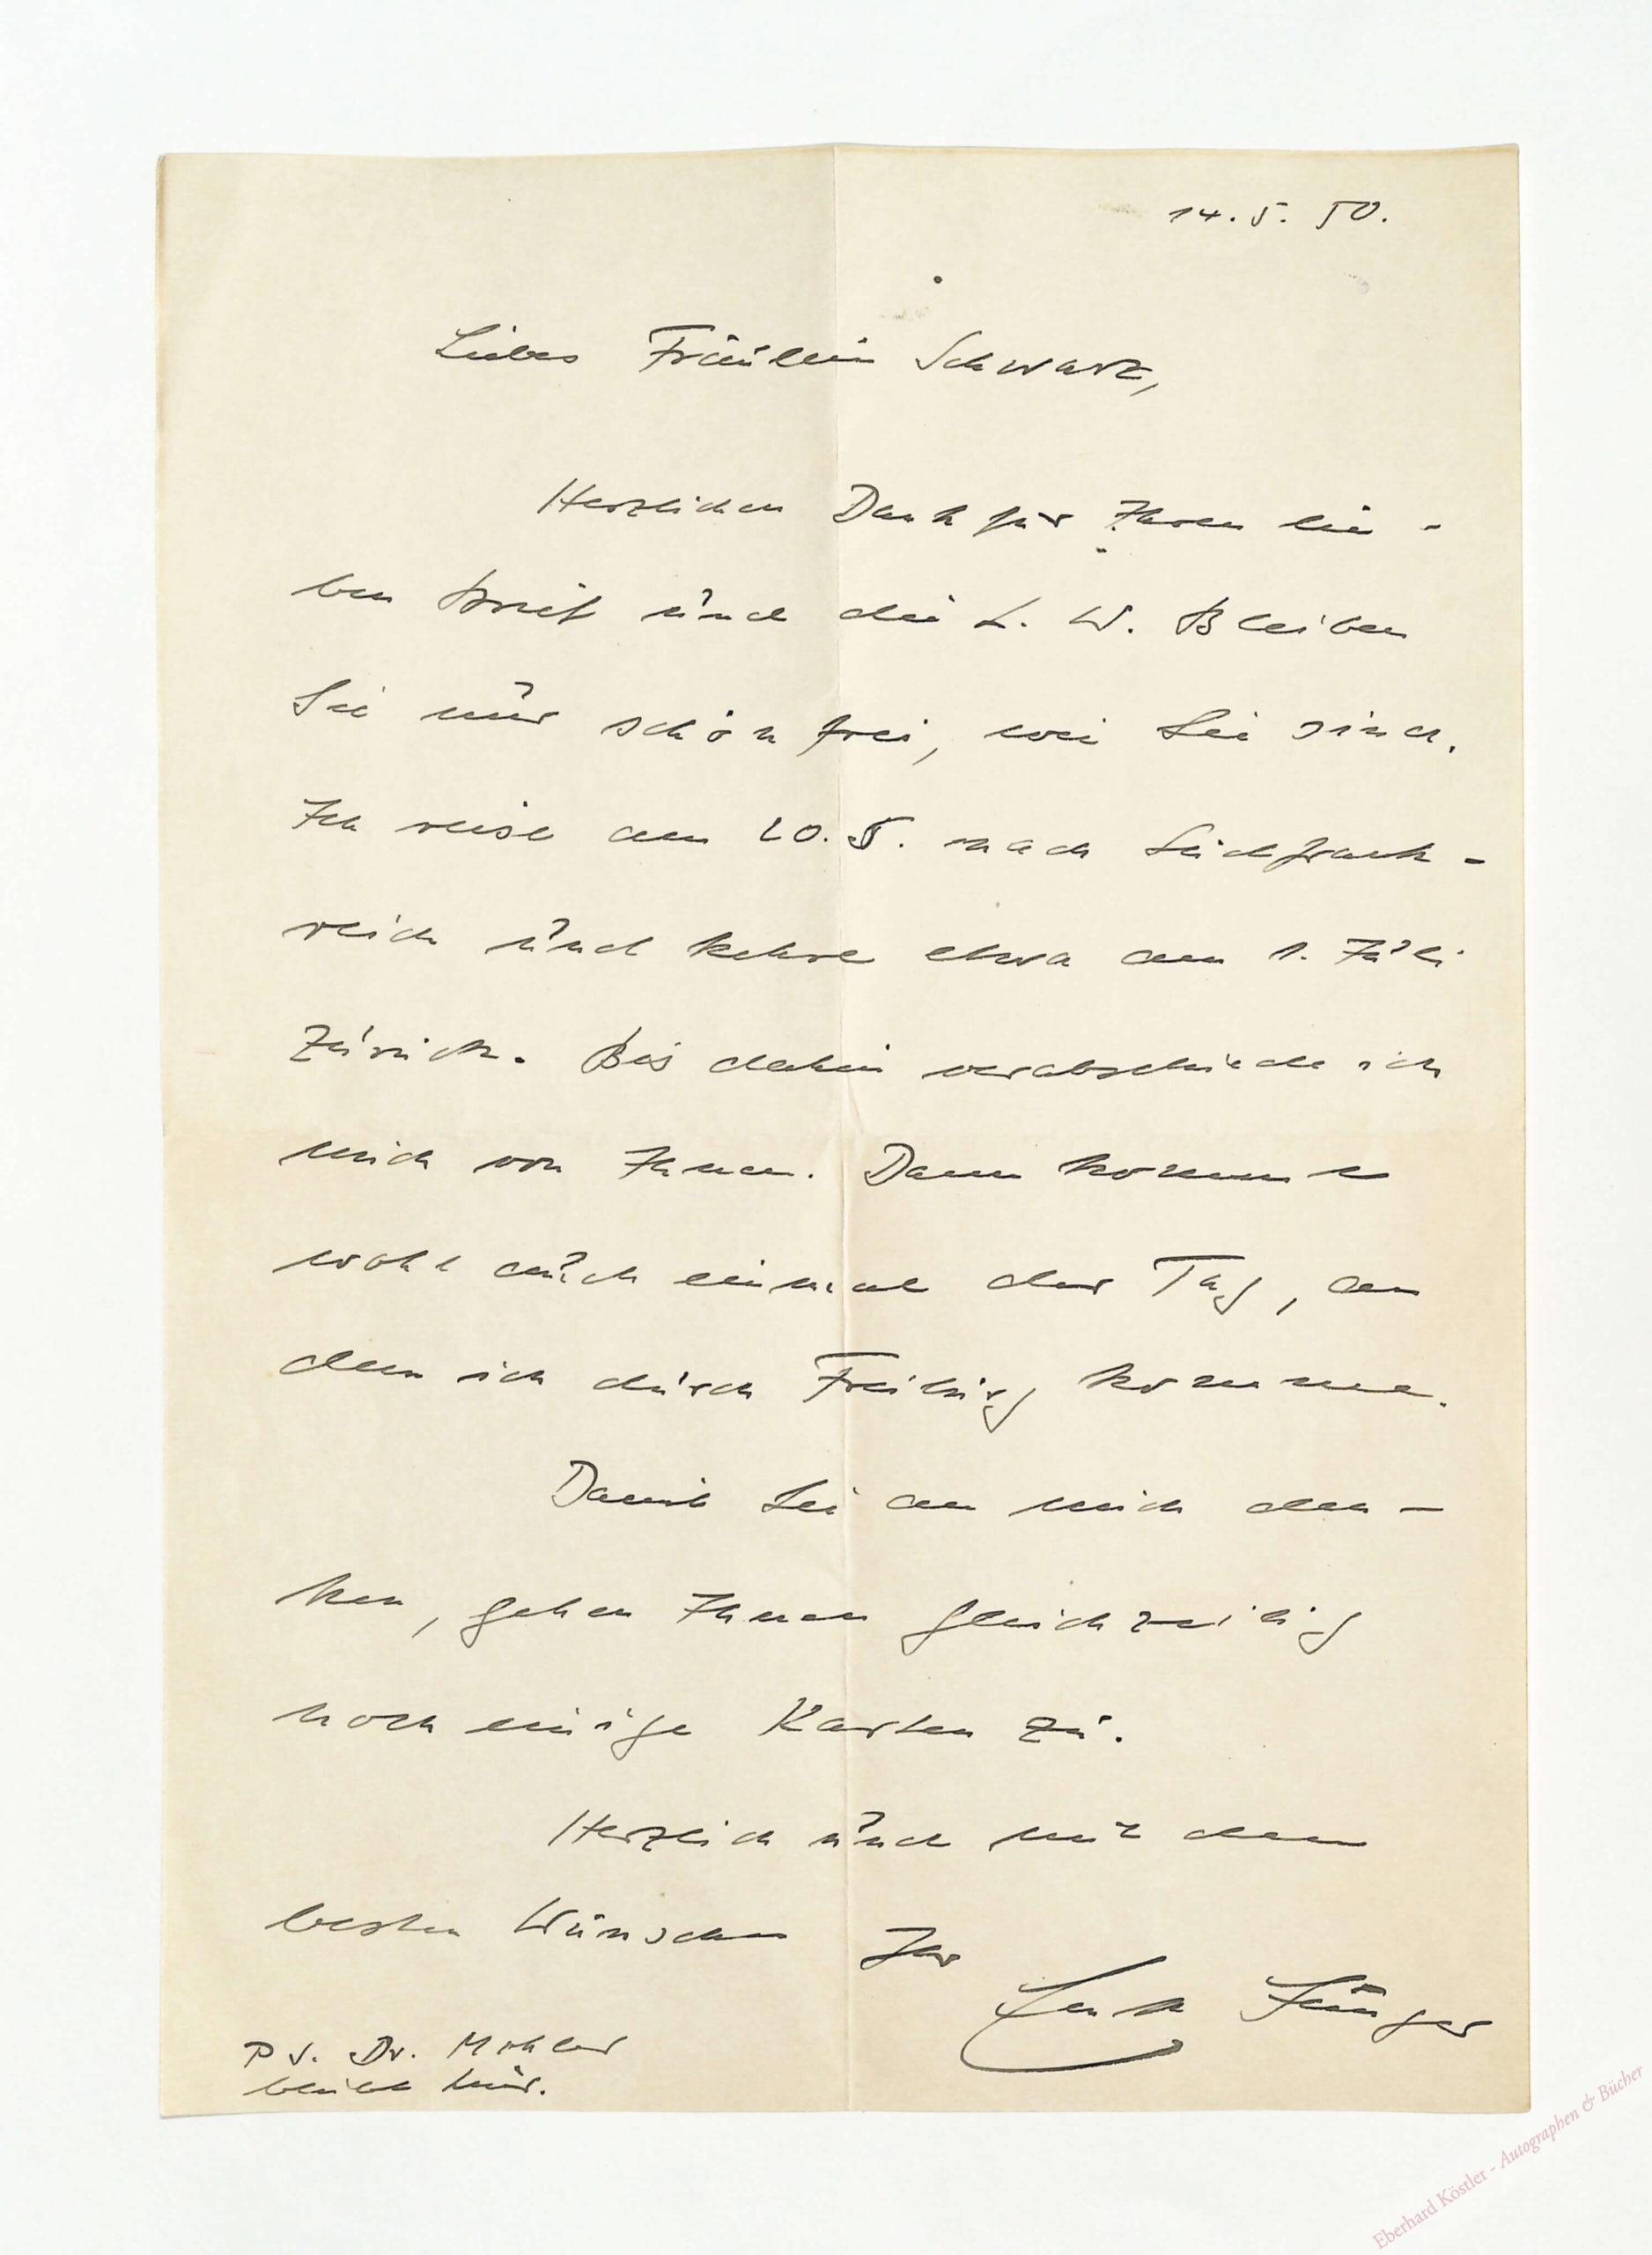 14. 5. 50.
Liebes Fräulein Schwarz,
Herzlichen Dank für Ihren lie-
ben Brief und die L. W. Bleiben
Sie nur schön frei, wie Sie sind.
Ich reise am 20. 5. nach Südfrank-
reich und kehre etwa am 1. Juli
zurück. Bis dahin verabschiede ich
mich von Ihnen. Dann komme
wohl auch einmal der Tag, an
dem ich durch Freiburg komme.
Damit Sie an mich den-
ken, gehen Ihnen gleichzeitig
noch einige Karten zu.
Herzlich und mit den
besten Wünschen Ihr
Ernst Jünger
PS. Dr. Mohler
bleibt hier.
Eberhard Köstler - Autographen & Bücher